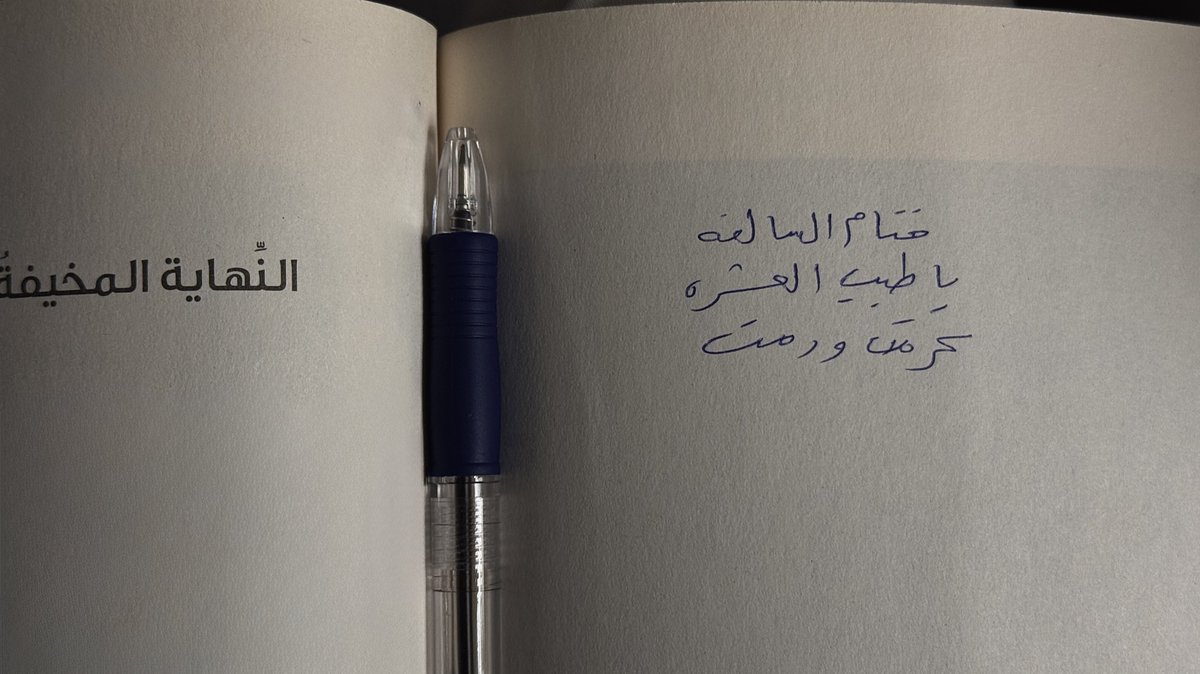 النِّهاية المخيفةُ
ختام السالفه
يا طيب العشره
كرمت ودمت